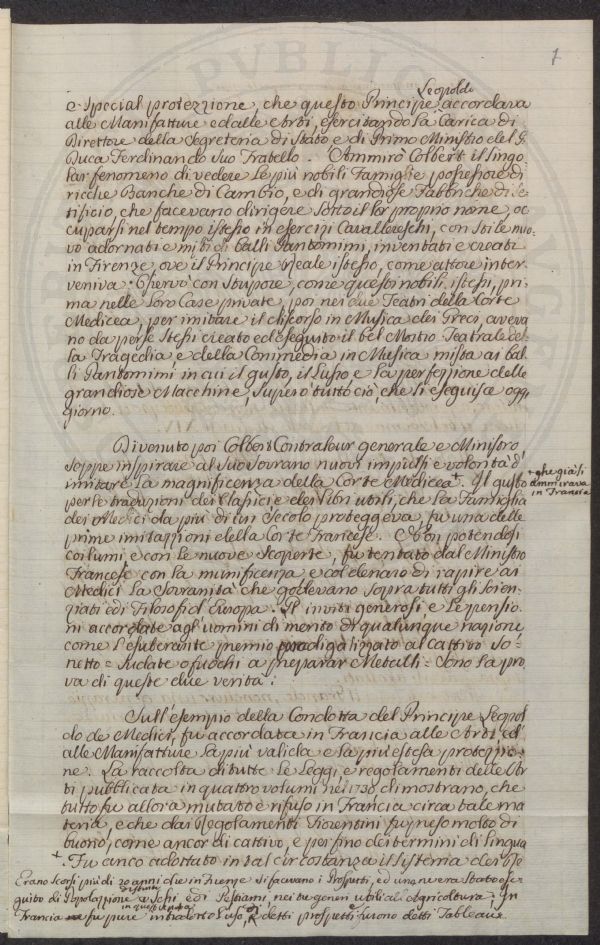 1
Leopoldo
e special protezzione, che questo Principe accordava
alle Manifatture ed alle Arti, esercitando la Carica di
Direttore della Segreteria di Stato e di Primo Ministro del G.
Duca Ferdinando suo Fratello. Ammirò Colbert il singo
lar fenomeno di vedere le più nobili Famiglie possessore di
ricche Banche di Cambio, e di grandiose Fabbriche di Se-
tificio, che facevano dirigere sotto il lor proprio nome, oc
cuparsi nel tempo istesso in esercizi Cavallereschi, con stile nuo-
vo adornati e misti di balli Pantomimi, inventati e creati
in Firenze, ove il Principe Reale istesso, come attore inter-
veniva: Osservò con stupore, come questi nobili istessi, pri-
ma nelle loro Case private, poi nei due Teatri della Corte
Medicea, per imitare il discorso in Musica dei Greci, aveva
no da per se stessi creato ed eseguito il bel Mostro Teatrale del-
la Tragedia e della Commedia in Musica mista ai bal-
li Pantomimi in cui il gusto, il lusso e la perfezzione delle
grandiose Macchine, superò tutto ciò, che si eseguisce oggi
giorno.
Divenuto poi Colbert Controleur generale e Ministro,
seppe inspirare al suo Sovrano nuovi impulsi e volontà d'
imitare la magnificenza della Corte Medicea +. Il gusto
+ che già si
ammirava
in Francia
per le traduzioni dei Classici e dei libri utili, che la Famiglia
dei Medici da più di un secolo proteggeva, fu una delle
prime imitazzioni della Corte Francese. Non potendosi
coi lumi e con le nuove scoperte, fu tentato dal Ministro
Francese con la munificenza e col denaro di rapire ai
Medici la Sovranità che godevano sopra tutti gli Scien-
ziati ed i Filosofi d'Europa. Gl'inviti generosi e le pensio-
ni accordate agl'uomini di merito di qualunque nazione
come l'esuberante premio prodigalizzato al cattivo So-
netto = Sudate o fuochi a preparar Metalli = Sono la pro
va di queste due verità.
Sull'esempio della Condotta del Principe Leopol
do de Medici, fu accordata in Francia alle Arti ed
alle Manifatture la più valida e la più estesa protezzio-
ne. La raccolta di tutte le Leggi e regolamenti delle Ar
ti pubblicata in quattro volumi dimostrano, che
tutto fu allora mutato e rifuso in Francia circa tale ma
teria, e che dai Regolamenti Fiorentini fu preso molto di
buono, come ancor di cattivo, e perfino dei termini di lingua
+. Fu anco adottato in tal circostanza il sistema dei
Erano scorsi più di 20 anni che in Firenze si facevano i Prospetti, ed uno ne era stato ese-
guito di Popolazione ed i Bestiami, nei tre generi utili all'Agricoltura; In
Francia fu pure introdotto l'uso, e detti prospetti furono detti Tableaux.